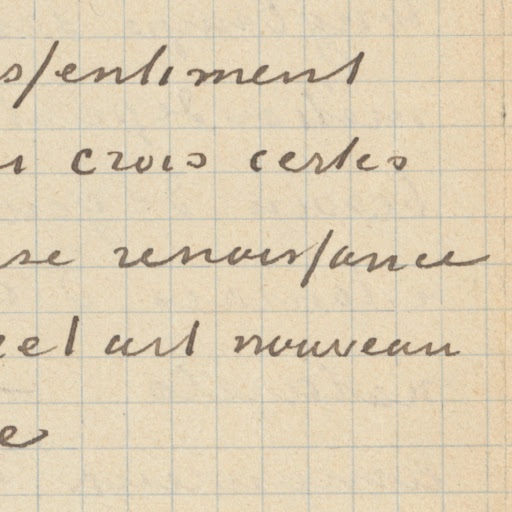 ssentiment
crois certes
se renaissance
cet art nouveau
e